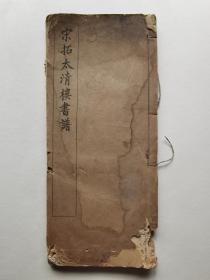 宋拓太清樓書譜